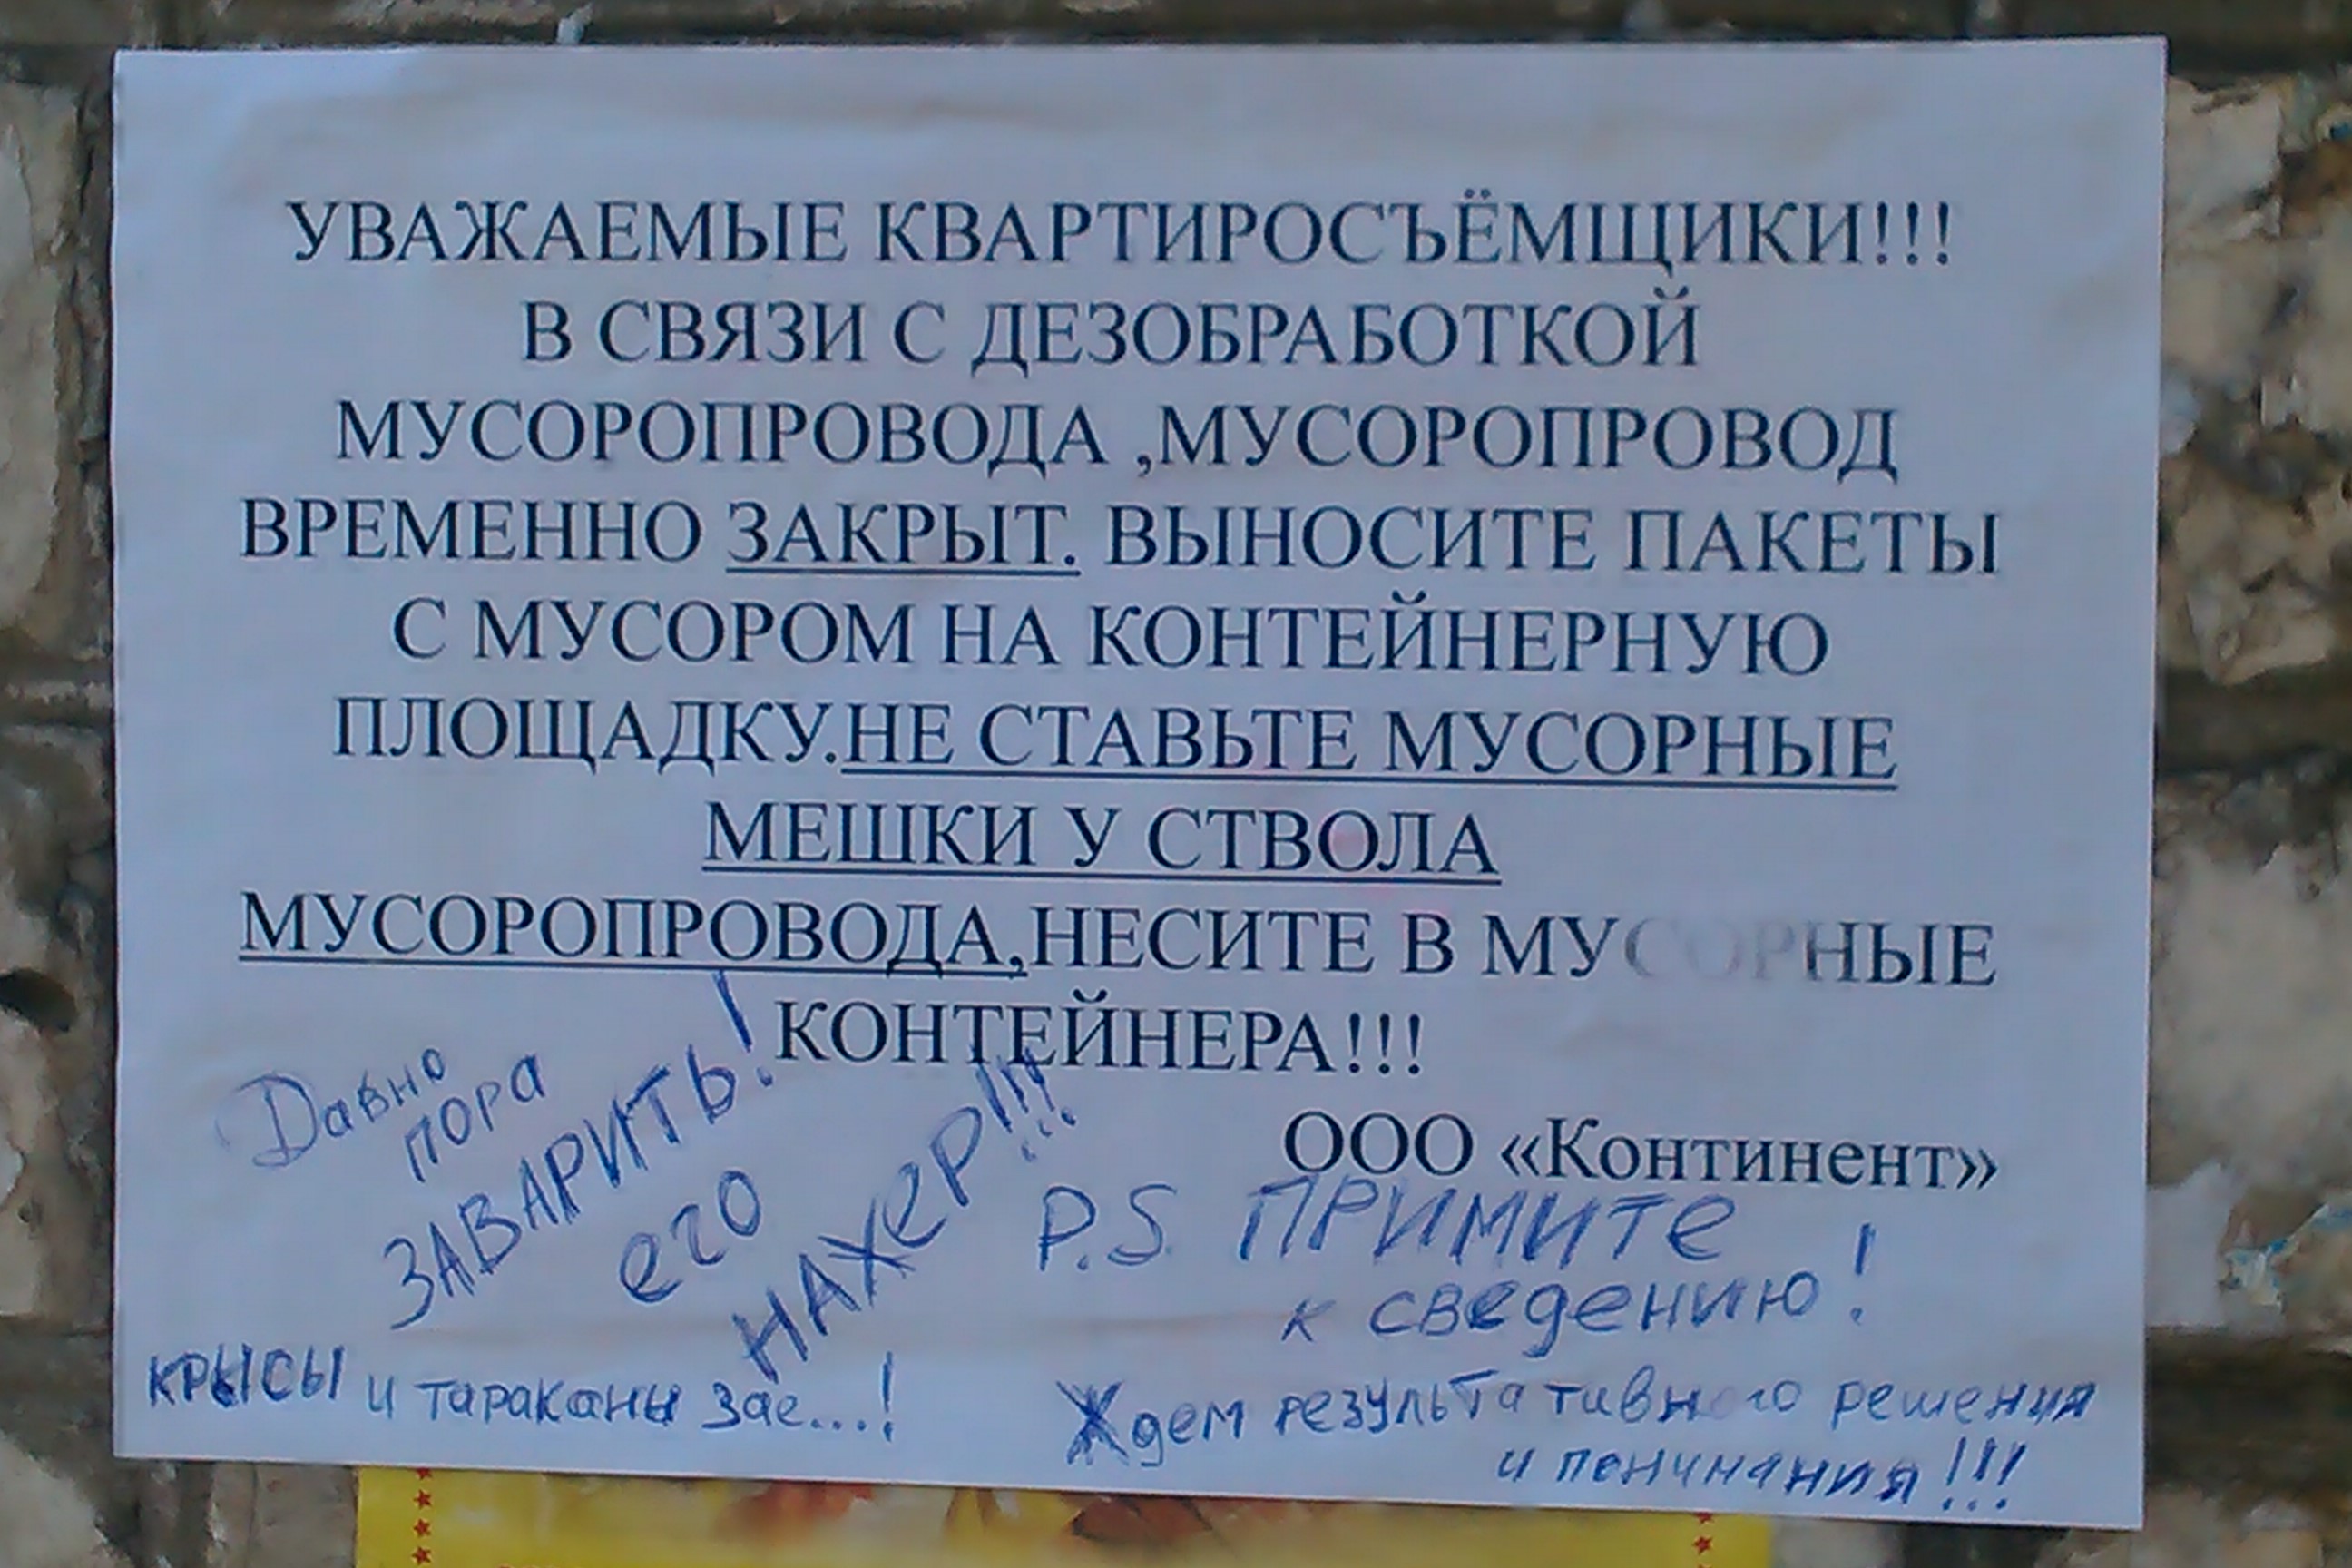 УВАЖАЕМЫЕ КВАРТИРОСЪЁМЩИКИ!!!
В СВЯЗИ С ДЕЗОБРАБОТКОЙ
МУСОРОПРОВОДА ,МУСОРОПРОВОД
ВРЕМЕННО ЗАКРЫТ. ВЫНОСИТЕ ПАКЕТЫ
С МУСОРОМ НА КОНТЕЙНЕРНУЮ
ПЛОЩАДКУ.НЕ СТАВЬТЕ МУСОРНЫЕ
МЕШКИ У СТВОЛА
МУСОРОПРОВОДА,НЕСИТЕ В МУСОРНЫЕ
КОНТЕЙНЕРА!!!
ООО «Континент»
Давно
пора
ЗАВАРИТЬ!
его
НАХЕР!!!
крысы и тараканы зае...!
P.S ПРИМИТЕ
к сведению!
Ждем результативного решения
и понимания!!!